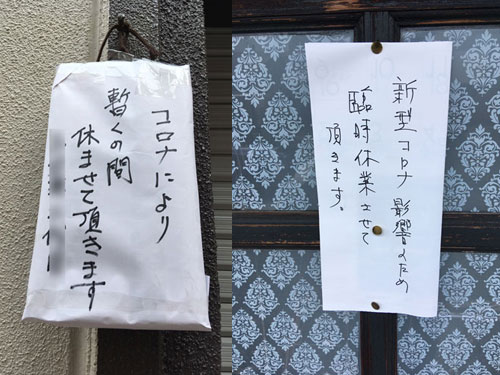 コロナにより
暫くの間
休ませて頂きます
新型コロナ影響のため
臨時休業させて
頂きます。